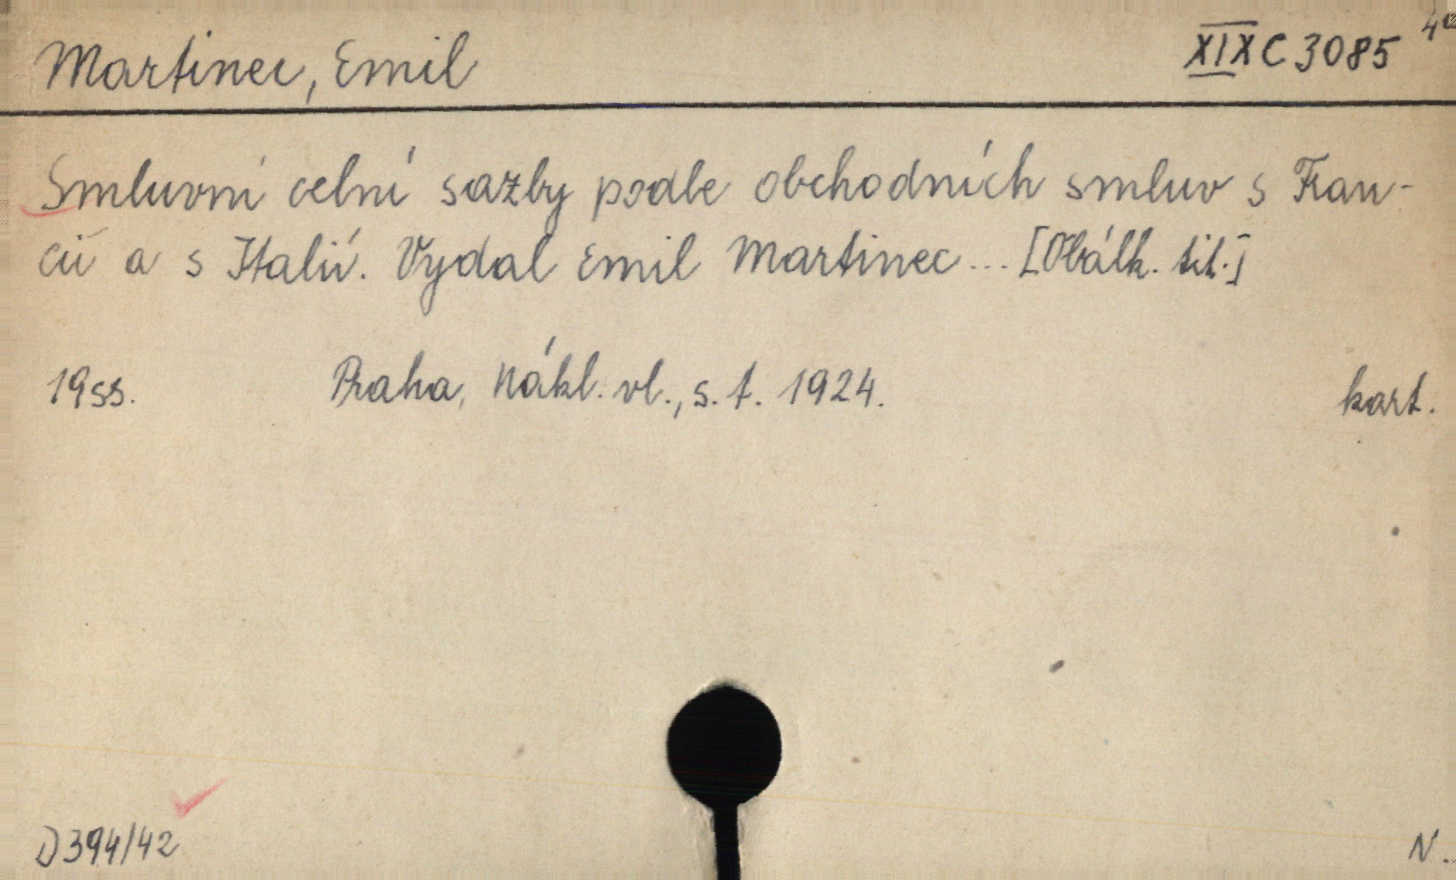 Martinec, Emil XIX C 3085
Smluvní celní sazby podle obchodních smluv s Fran-
cií a s Italií. Vydal Emil Martinec... [Obálk. tit.]
19 ss. Praha, Nákl. vl., s. t. 1924. kart.
D 394/42 N..